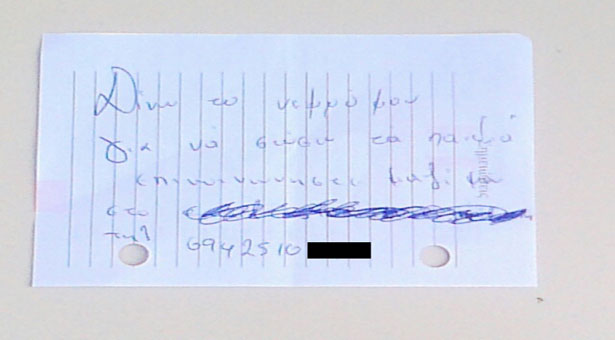 Δίνω το νεφρό μου
για νά σώσω τα παιδιά
επικοινωνησει μαζί
στο
τηλ 6942510